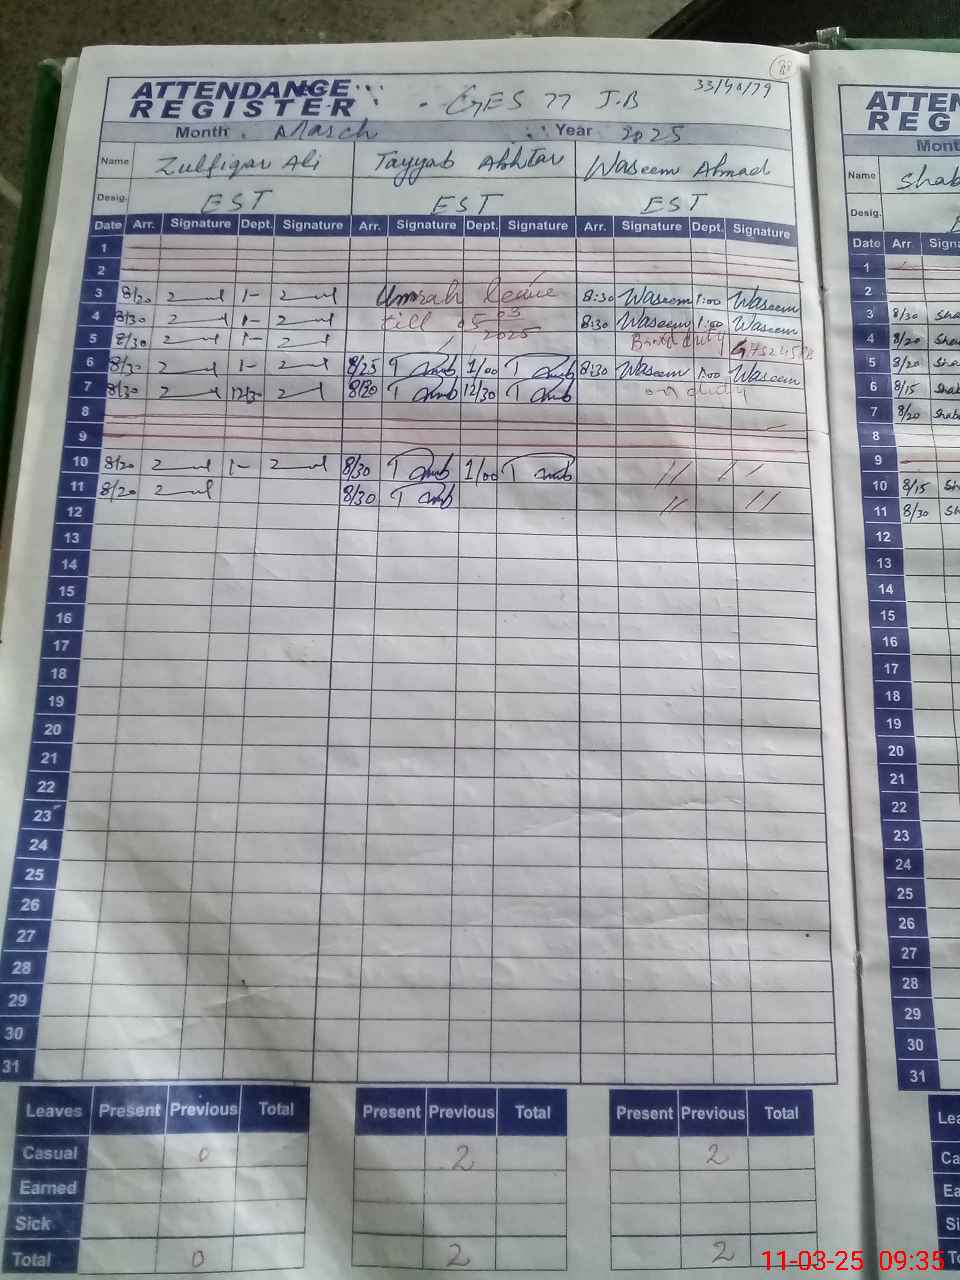 33/40/79
ATTENDANCE
REGISTER
GES 77 J.B
Month March Year 2025
Name Zulfiqar Ali Tayyab Akhtar Waseem Ahmad
Desig. EST EST EST
Date Arr. Signature Dept. Signature Arr. Signature Dept. Signature Arr. Signature Dept. Signature
1
2
3 8/20 1- Umrah leave 8:30 Waseem 1:00 Waseem
4 8/30 1- till 05 03 2025 8:30 Waseem 1:00 Waseem
5 8/30 1- duty
6 8/30 1- 8/25 1/00 8:30 Waseem 1:00 Waseem
7 8/30 12/30 8/30 12/30 on duty
8
9
10 8/20 1- 8/30 1/00 // //
11 8/20 8/30 // //
12
13
14
15
16
17
18
19
20
21
22
23
24
25
26
27
28
29
30
31
Leaves Present Previous Total Present Previous Total Present Previous Total
Casual 0 2 2
Earned
Sick
Total 0 2 2
ATTEN
REG
Mont
Name Shab
Desig.
Date Arr. Signa
1
2
3 8/30 Sha
4 8/20 Sha
5 8/20 Sha
6 8/15 Shab
7 8/20 Shab
8
9
10 8/15 Sh
11 8/30 Sh
12
13
14
15
16
17
18
19
20
21
22
23
24
25
26
27
28
29
30
31
Lea
Ca
Ea
Si
To
11-03-25 09:35